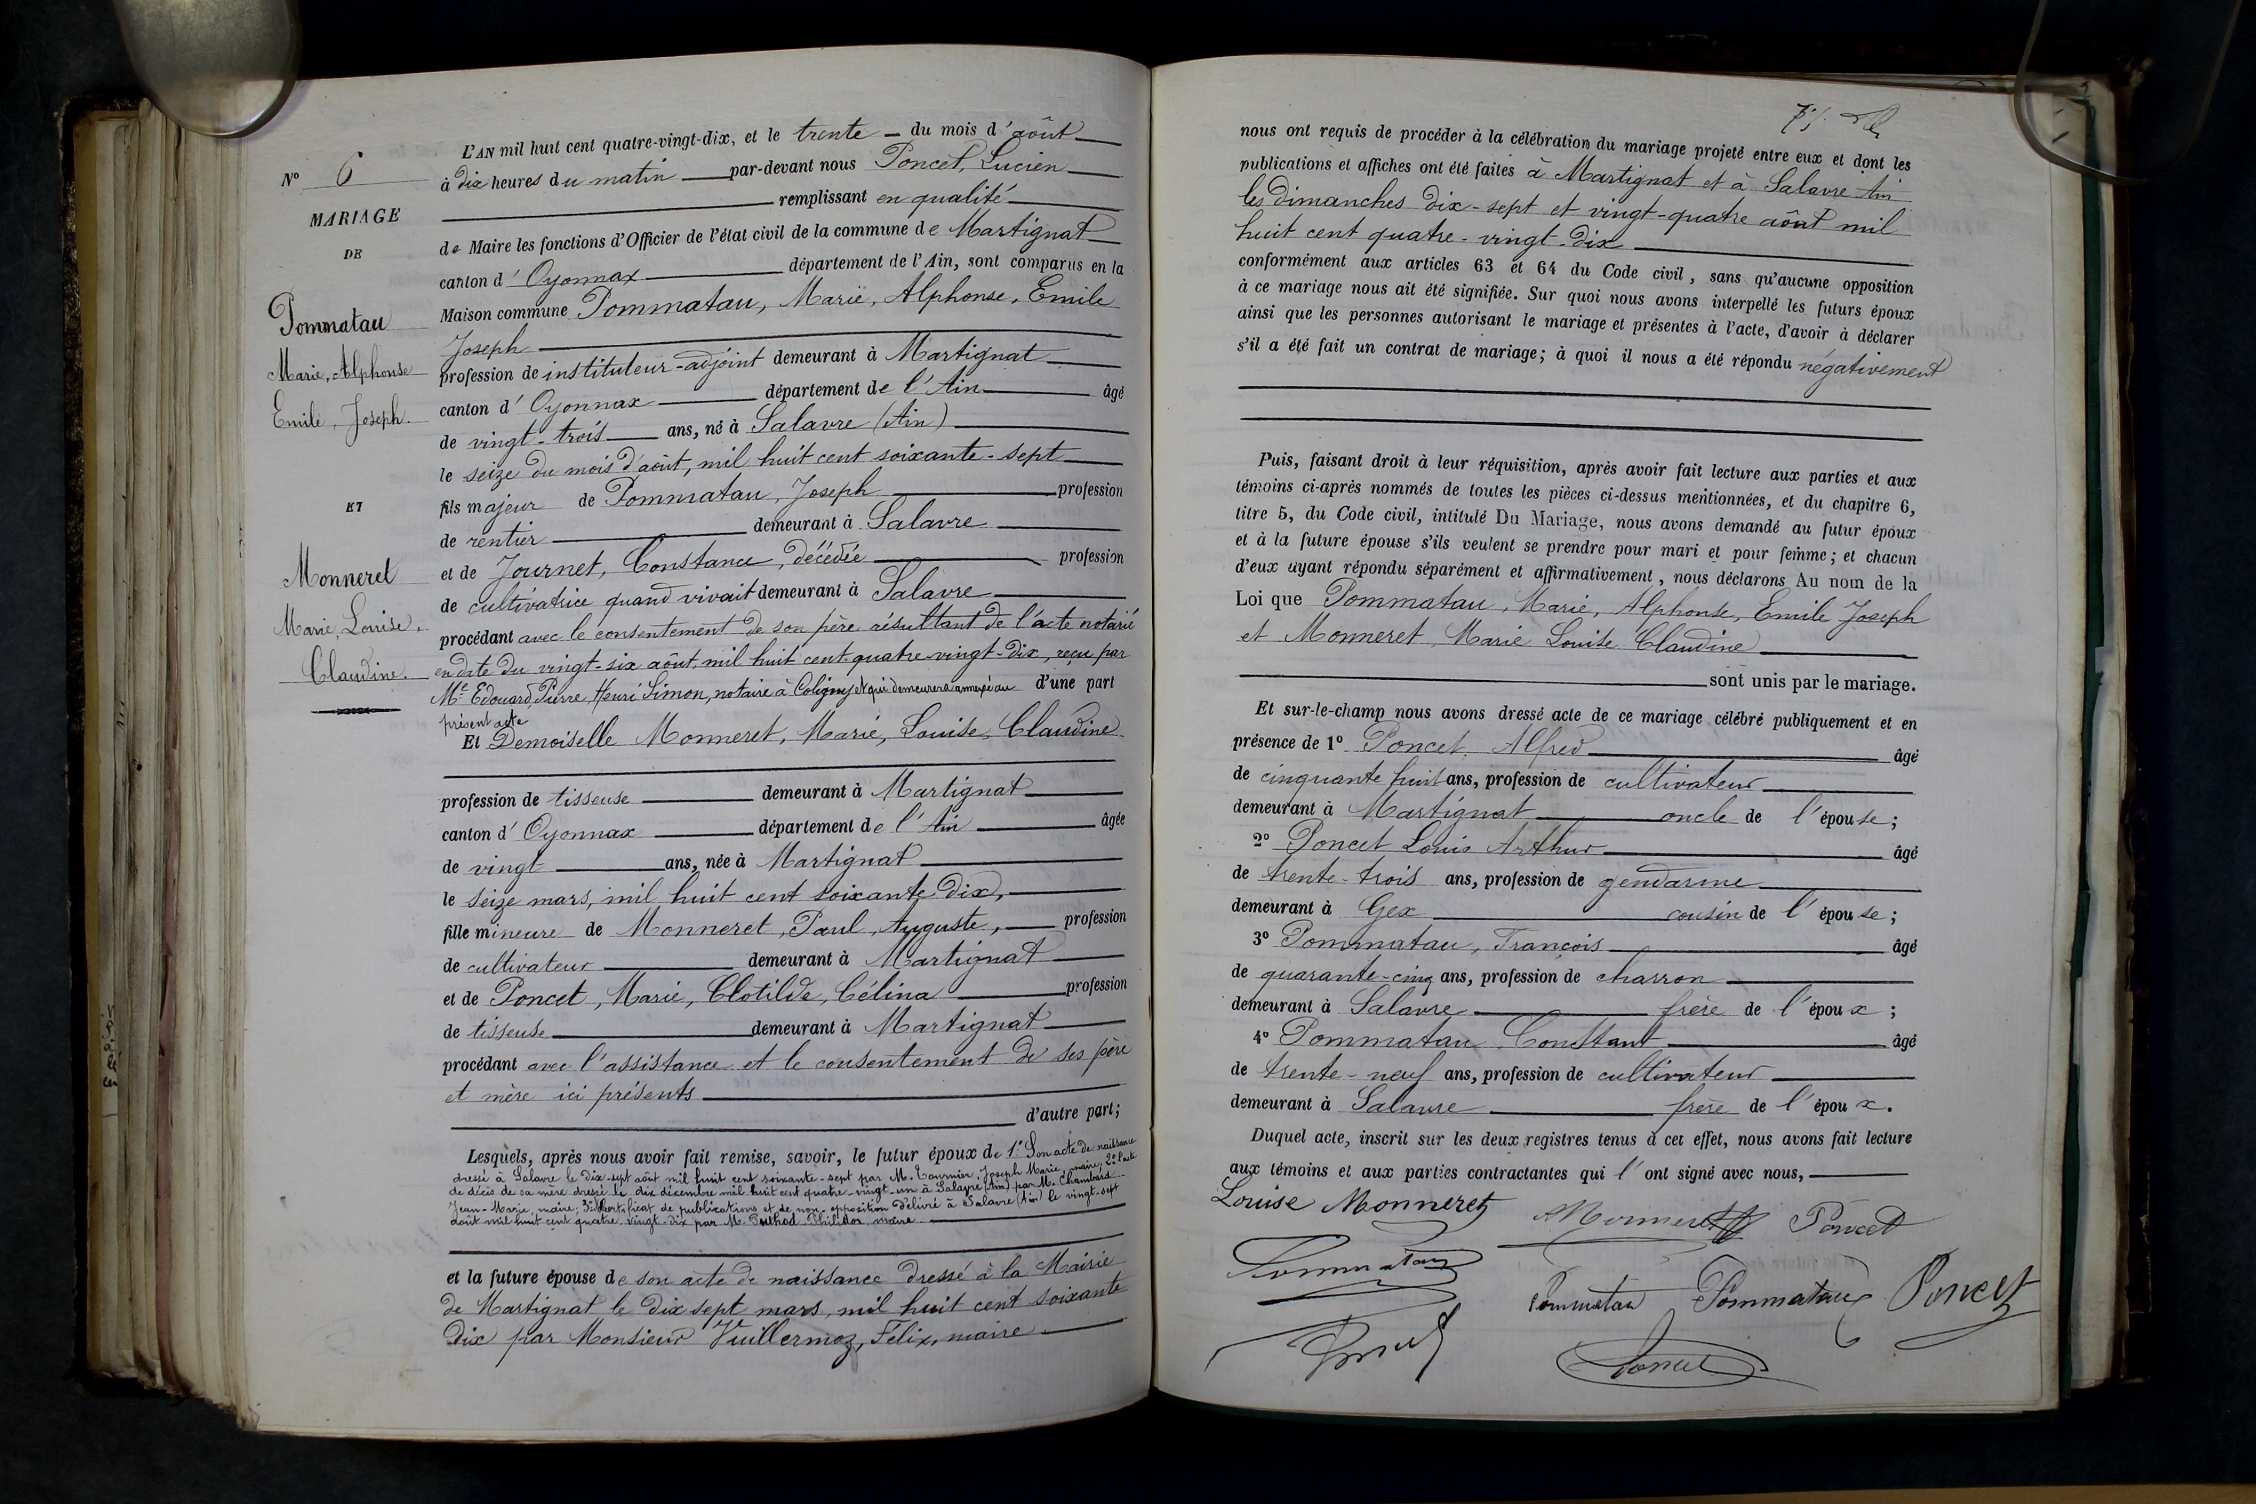 L'AN mil huit cent quatre-vingt-dix, et le trente du mois d'août
N° 6
à dix heures du matin par-devant nous Poncet, Lucien
remplissant en qualité
MARIAGE
de Maire les fonctions d'Officier de l'état civil de la commune de Martignat
DE
canton d'Oyonnax département de l'Ain, sont comparus en la
Pommatau
Maison commune Pommatau, Marie, Alphonse, Emile
Joseph
Marie, Alphonse
profession de instituteur-adjoint demeurant à Martignat
canton d'Oyonnax département de l'Ain âgé
Emile, Joseph.
de vingt-trois ans, né à Salavre (Ain)
le seize du mois d'août, mil huit cent soixante-sept
ET
fils majeur de Pommatau, Joseph profession
de rentier demeurant à Salavre
et de Journet, Constance, décédée profession
Monneret
de cultivatrice quand vivait demeurant à Salavre
Marie, Louise,
procédant avec le consentement de son père résultant de l'acte notarié
Claudine.
en date du vingt-six août mil huit cent quatre-vingt-dix, reçu par
Me Edouard, Pierre, Henri Simon, notaire à Coligny et qui demeurera annexé au d'une part
présent acte
Et Demoiselle Monneret, Marie, Louise, Claudine
profession de tisseuse demeurant à Martignat
canton d'Oyonnax département de l'Ain âgée
de vingt ans, née à Martignat
le seize mars, mil huit cent soixante-dix,
fille mineure de Monneret, Paul, Auguste, profession
de cultivateur demeurant à Martignat
et de Poncet, Marie, Clotilde, Célina profession
de tisseuse demeurant à Martignat
procédant avec l'assistance et le consentement de ses père
et mère ici présents
d'autre part;
Lesquels, après nous avoir fait remise, savoir, le futur époux de 1° Son acte de naissance
dressé à Salavre le dix-sept août mil huit cent soixante-sept par M. Tournier, Joseph Marie, maire; 2° l'acte
de décès de sa mère dressé le dix décembre mil huit cent quatre-vingt-un à Salavre (Ain) par M. Chambard
Jean-Marie, maire; 3° Certificat de publications et de non-opposition délivré à Salavre (Ain) le vingt-sept
août mil huit cent quatre-vingt-dix par M. Philidor, maire
et la future épouse de son acte de naissance dressé à la Mairie
de Martignat le dix sept mars, mil huit cent soixante
dix par Monsieur Vuillermoz, Félix, maire
75
nous ont requis de procéder à la célébration du mariage projeté entre eux et dont les
publications et affiches ont été faites à Martignat et à Salavre Ain
les dimanches dix-sept et vingt-quatre août mil
huit cent quatre-vingt-dix
conformément aux articles 63 et 64 du Code civil, sans qu'aucune opposition
à ce mariage nous ait été signifiée. Sur quoi nous avons interpellé les futurs époux
ainsi que les personnes autorisant le mariage et présentes à l'acte, d'avoir à déclarer
s'il a été fait un contrat de mariage; à quoi il nous a été répondu négativement
Puis, faisant droit à leur réquisition, après avoir fait lecture aux parties et aux
témoins ci-après nommés de toutes les pièces ci-dessus mentionnées, et du chapitre 6,
titre 5, du Code civil, intitulé Du Mariage, nous avons demandé au futur époux
et à la future épouse s'ils veulent se prendre pour mari et pour femme; et chacun
d'eux ayant répondu séparément et affirmativement, nous déclarons Au nom de la
Loi que Pommatau, Marie, Alphonse, Emile Joseph
et Monneret, Marie Louise Claudine
sont unis par le mariage.
Et sur-le-champ nous avons dressé acte de ce mariage célébré publiquement et en
présence de 1° Poncet Alfred âgé
de cinquante huit ans, profession de cultivateur
demeurant à Martignat oncle de l'épouse;
2° Poncet Louis Arthur âgé
de trente-trois ans, profession de gendarme
demeurant à Gex cousin de l'épouse;
3° Pommatau, François âgé
de quarante-cinq ans, profession de charron
demeurant à Salavre frère de l'époux;
4° Pommatau Constant âgé
de trente-neuf ans, profession de cultivateur
demeurant à Salavre frère de l'époux.
Duquel acte, inscrit sur les deux registres tenus à cet effet, nous avons fait lecture
aux témoins et aux parties contractantes qui l'ont signé avec nous,
Louise Monneret
Monneret Poncet
Pommatau
Pommatau Pommatau Poncet
Poncet
Poncet